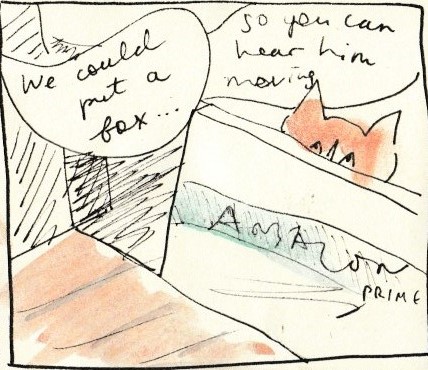 We could
put a
box...
so you can
hear him
moving
AMAZon
PRIME